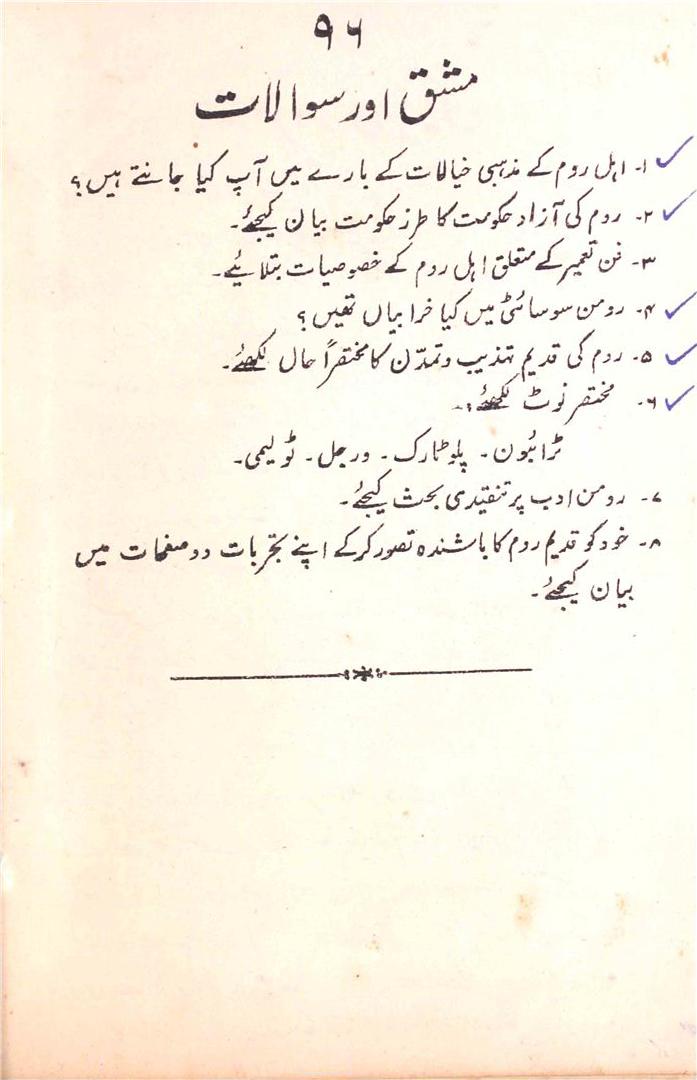 ۹۶
مشق اور سوالات
۱۔ اہل روم کے مذہبی خیالات کے بارے میں آپ کیا جانتے ہیں؟
۲۔ روم کی آزاد حکومت کا طرز حکومت بیان کیجئے۔
۳۔ فن تعمیر کے متعلق اہل روم کے خصوصیات بتلائیے۔
۴۔ رومن سوسائٹی میں کیا خرابیاں تھیں؟
۵۔ روم کی قدیم تہذیب و تمدّن کا مختصراً حال لکھئے۔
۶۔ مختصر نوٹ لکھئے:۔
ٹرائبون۔ پلوٹارک۔ ورجل۔ ٹولیمی۔
۷۔ رومن ادب پر تنقیدی بحث کیجئے۔
۸۔ خود کو قدیم روم کا باشندہ تصور کرکے اپنے تجربات دو صفحات میں
بیان کیجئے۔